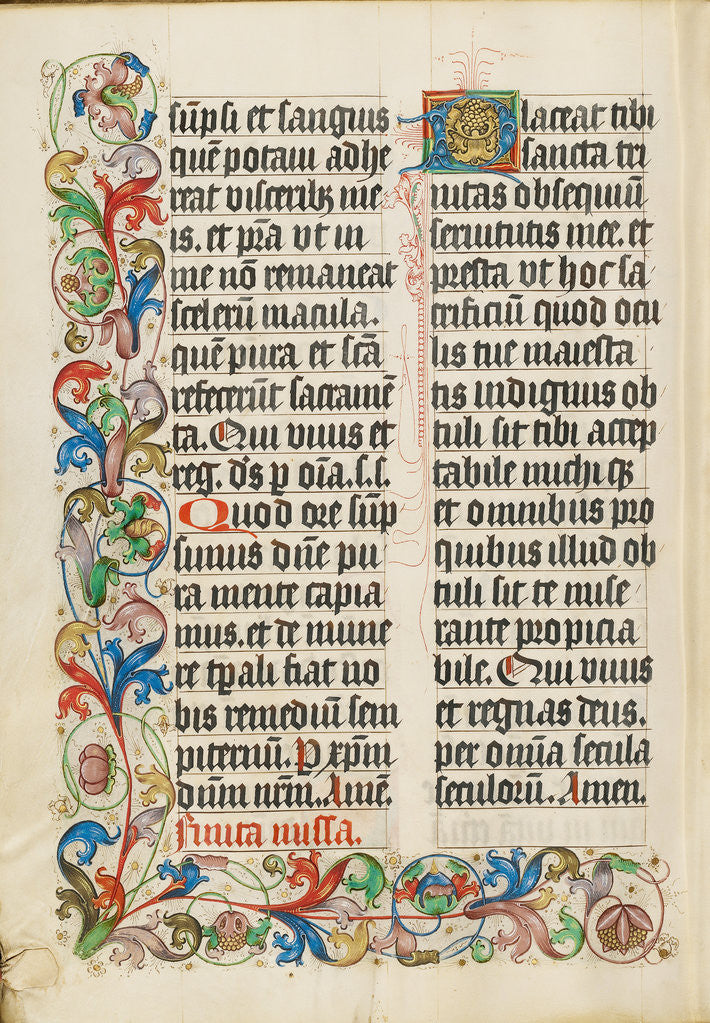 sūpsi et sanguis
quē potaui adhe
reat visceribꝫ me
is. et p̄ra vt in
me nō remaneat
scelerū macula.
quē pura et sc̄a
refecerūt sacramē
ta. Qui viuis et
reg. d̄s ꝑ oīa. s. s.
Quod ore sūp
simus dn̄e pu
ra mente capia
mus. et de mune
re tꝑali fiat no
bis remediū sem
piternū. P xp̄m
dn̄m nr̄m. Amē.
Finita missa.
Placeat tibi
sancta tri
nitas obsequiū
seruitutis mee. et
presta vt hoc sa
crificiū quod ocu
lis tue maiesta
tis indignus ob
tuli sit tibi accep
tabile michi qꝫ
et omnibus pro
quibus illud ob
tuli sit te mise
rante propicia
bile. Qui viuis
et regnas deus.
per omnia secula
seculorū. Amen.